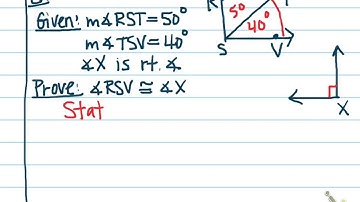 Given: m∡RST=50°
m∡TSV=40°
∡X is rt. ∡
Prove: ∡RSV ≅ ∡X
Stat
R
50°
40°
S
V
X